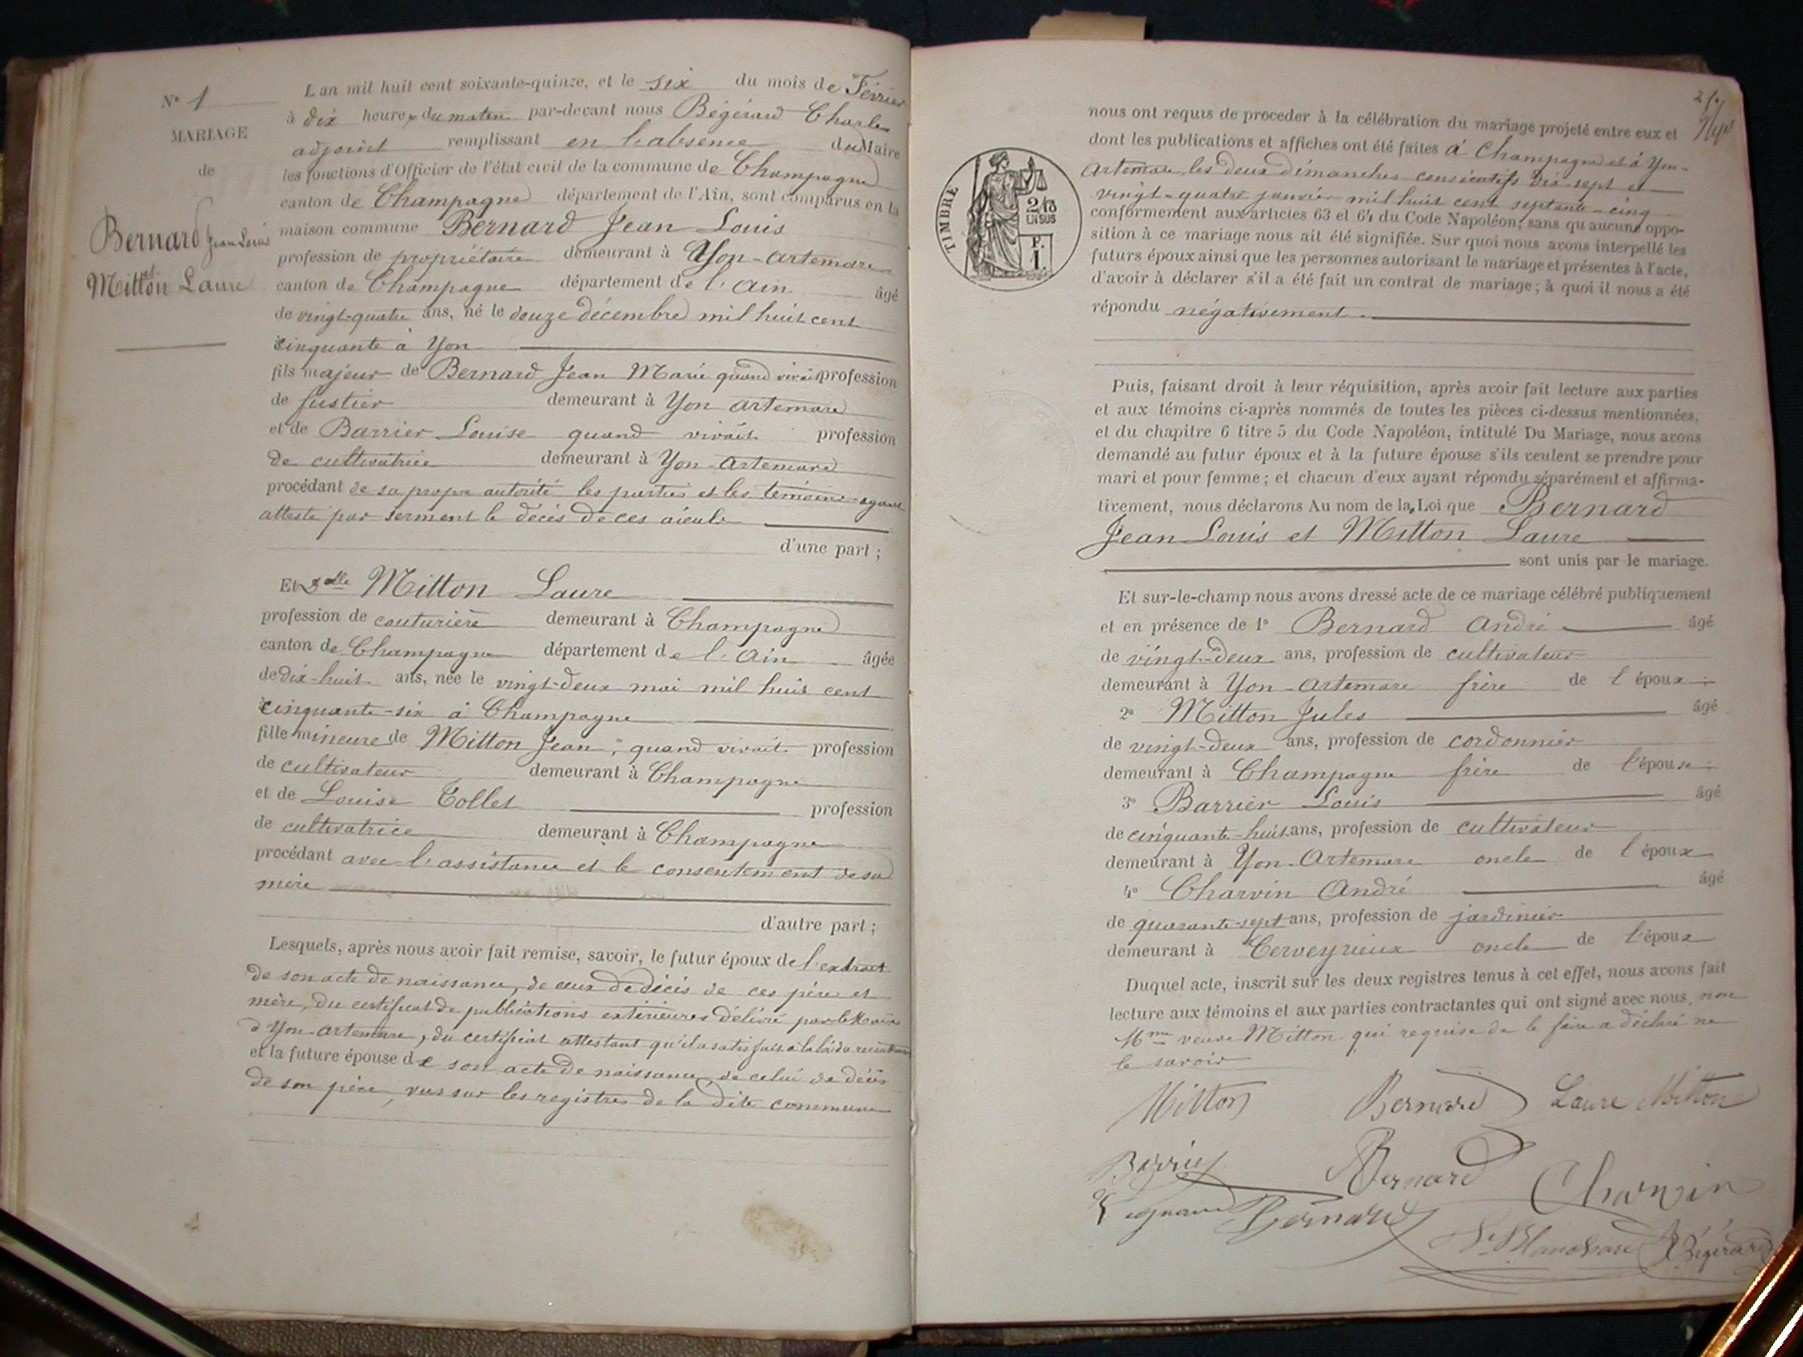 N° 1
MARIAGE
de
Bernard Jean Louis
et
Mitton Laure
L'an mil huit cent soixante-quinze, et le six du mois de Février
à dix heures du matin par-devant nous Bégérard Charles
adjoint remplissant en l'absence du Maire
les fonctions d'Officier de l'état civil de la commune de Champagne
canton de Champagne département de l'Ain, sont comparus en la
maison commune Bernard Jean Louis
profession de propriétaire demeurant à Yon-Artemare
canton de Champagne département de l'Ain âgé
de vingt-quatre ans, né le douze décembre mil huit cent
cinquante à Yon
fils majeur de Bernard Jean Marie quand vivait profession
de fustier demeurant à Yon Artemare
et de Barrier Louise quand vivait profession
de cultivatrice demeurant à Yon-Artemare
procédant de sa propre autorité les parties et les témoins ayant
attesté par serment le décès de ces aieuls
d'une part ;
Et Delle Mitton Laure
profession de couturière demeurant à Champagne
canton de Champagne département de l'Ain âgée
de dix-huit ans, née le vingt-deux mai mil huit cent
cinquante-six à Champagne
fille mineure de Mitton Jean, quand vivait profession
de cultivateur demeurant à Champagne
et de Louise Tollet profession
de cultivatrice demeurant à Champagne
procédant avec l'assistance et le consentement de sa
mère
d'autre part ;
Lesquels, après nous avoir fait remise, savoir, le futur époux de l'extrait
de son acte de naissance, de ceux de décès de ces père et
mère, du certificat de publications extérieures délivré par le Maire
d'Yon-Artemare, du certificat attestant qu'il a satisfait à la loi du recrutement
et la future épouse de son acte de naissance, de celui de décès
de son père, vus sur les registres de la dite commune
nous ont requis de procéder à la célébration du mariage projeté entre eux et
dont les publications et affiches ont été faites à Champagne et à Yon-
Artemare, les deux dimanches consécutifs dix-sept et
vingt-quatre janvier mil huit cent septante-cinq
conformément aux articles 63 et 64 du Code Napoléon, sans qu'aucune oppo-
sition à ce mariage nous ait été signifiée. Sur quoi nous avons interpellé les
futurs époux ainsi que les personnes autorisant le mariage et présentes à l'acte,
d'avoir à déclarer s'il a été fait un contrat de mariage ; à quoi il nous a été
répondu négativement.
TIMBRE
2/10
EN SUS
F.
1
Puis, faisant droit à leur réquisition, après avoir fait lecture aux parties
et aux témoins ci-après nommés de toutes les pièces ci-dessus mentionnées,
et du chapitre 6 titre 5 du Code Napoléon, intitulé Du Mariage, nous avons
demandé au futur époux et à la future épouse s'ils veulent se prendre pour
mari et pour femme ; et chacun d'eux ayant répondu séparément et affirma-
tivement, nous déclarons Au nom de la Loi que Bernard
Jean Louis et Mitton Laure
sont unis par le mariage.
Et sur-le-champ nous avons dressé acte de ce mariage célébré publiquement
et en présence de 1° Bernard André âgé
de vingt-deux ans, profession de cultivateur
demeurant à Yon-Artemare frère de l'époux
2° Mitton Jules âgé
de vingt-deux ans, profession de cordonnier
demeurant à Champagne frère de l'épouse
3° Barrier Louis âgé
de cinquante-huit ans, profession de cultivateur
demeurant à Yon-Artemare oncle de l'époux
4° Charvin André âgé
de quarante-sept ans, profession de jardinier
demeurant à Cerveyrieux oncle de l'époux
Duquel acte, inscrit sur les deux registres tenus à cet effet, nous avons fait
lecture aux témoins et aux parties contractantes qui ont signé avec nous, non
Mme veuve Mitton qui requise de le faire a déclaré ne
le savoir
Mitton Bernard Laure Mitton
Barrier Bernard Charvin
Bernard Bégérard